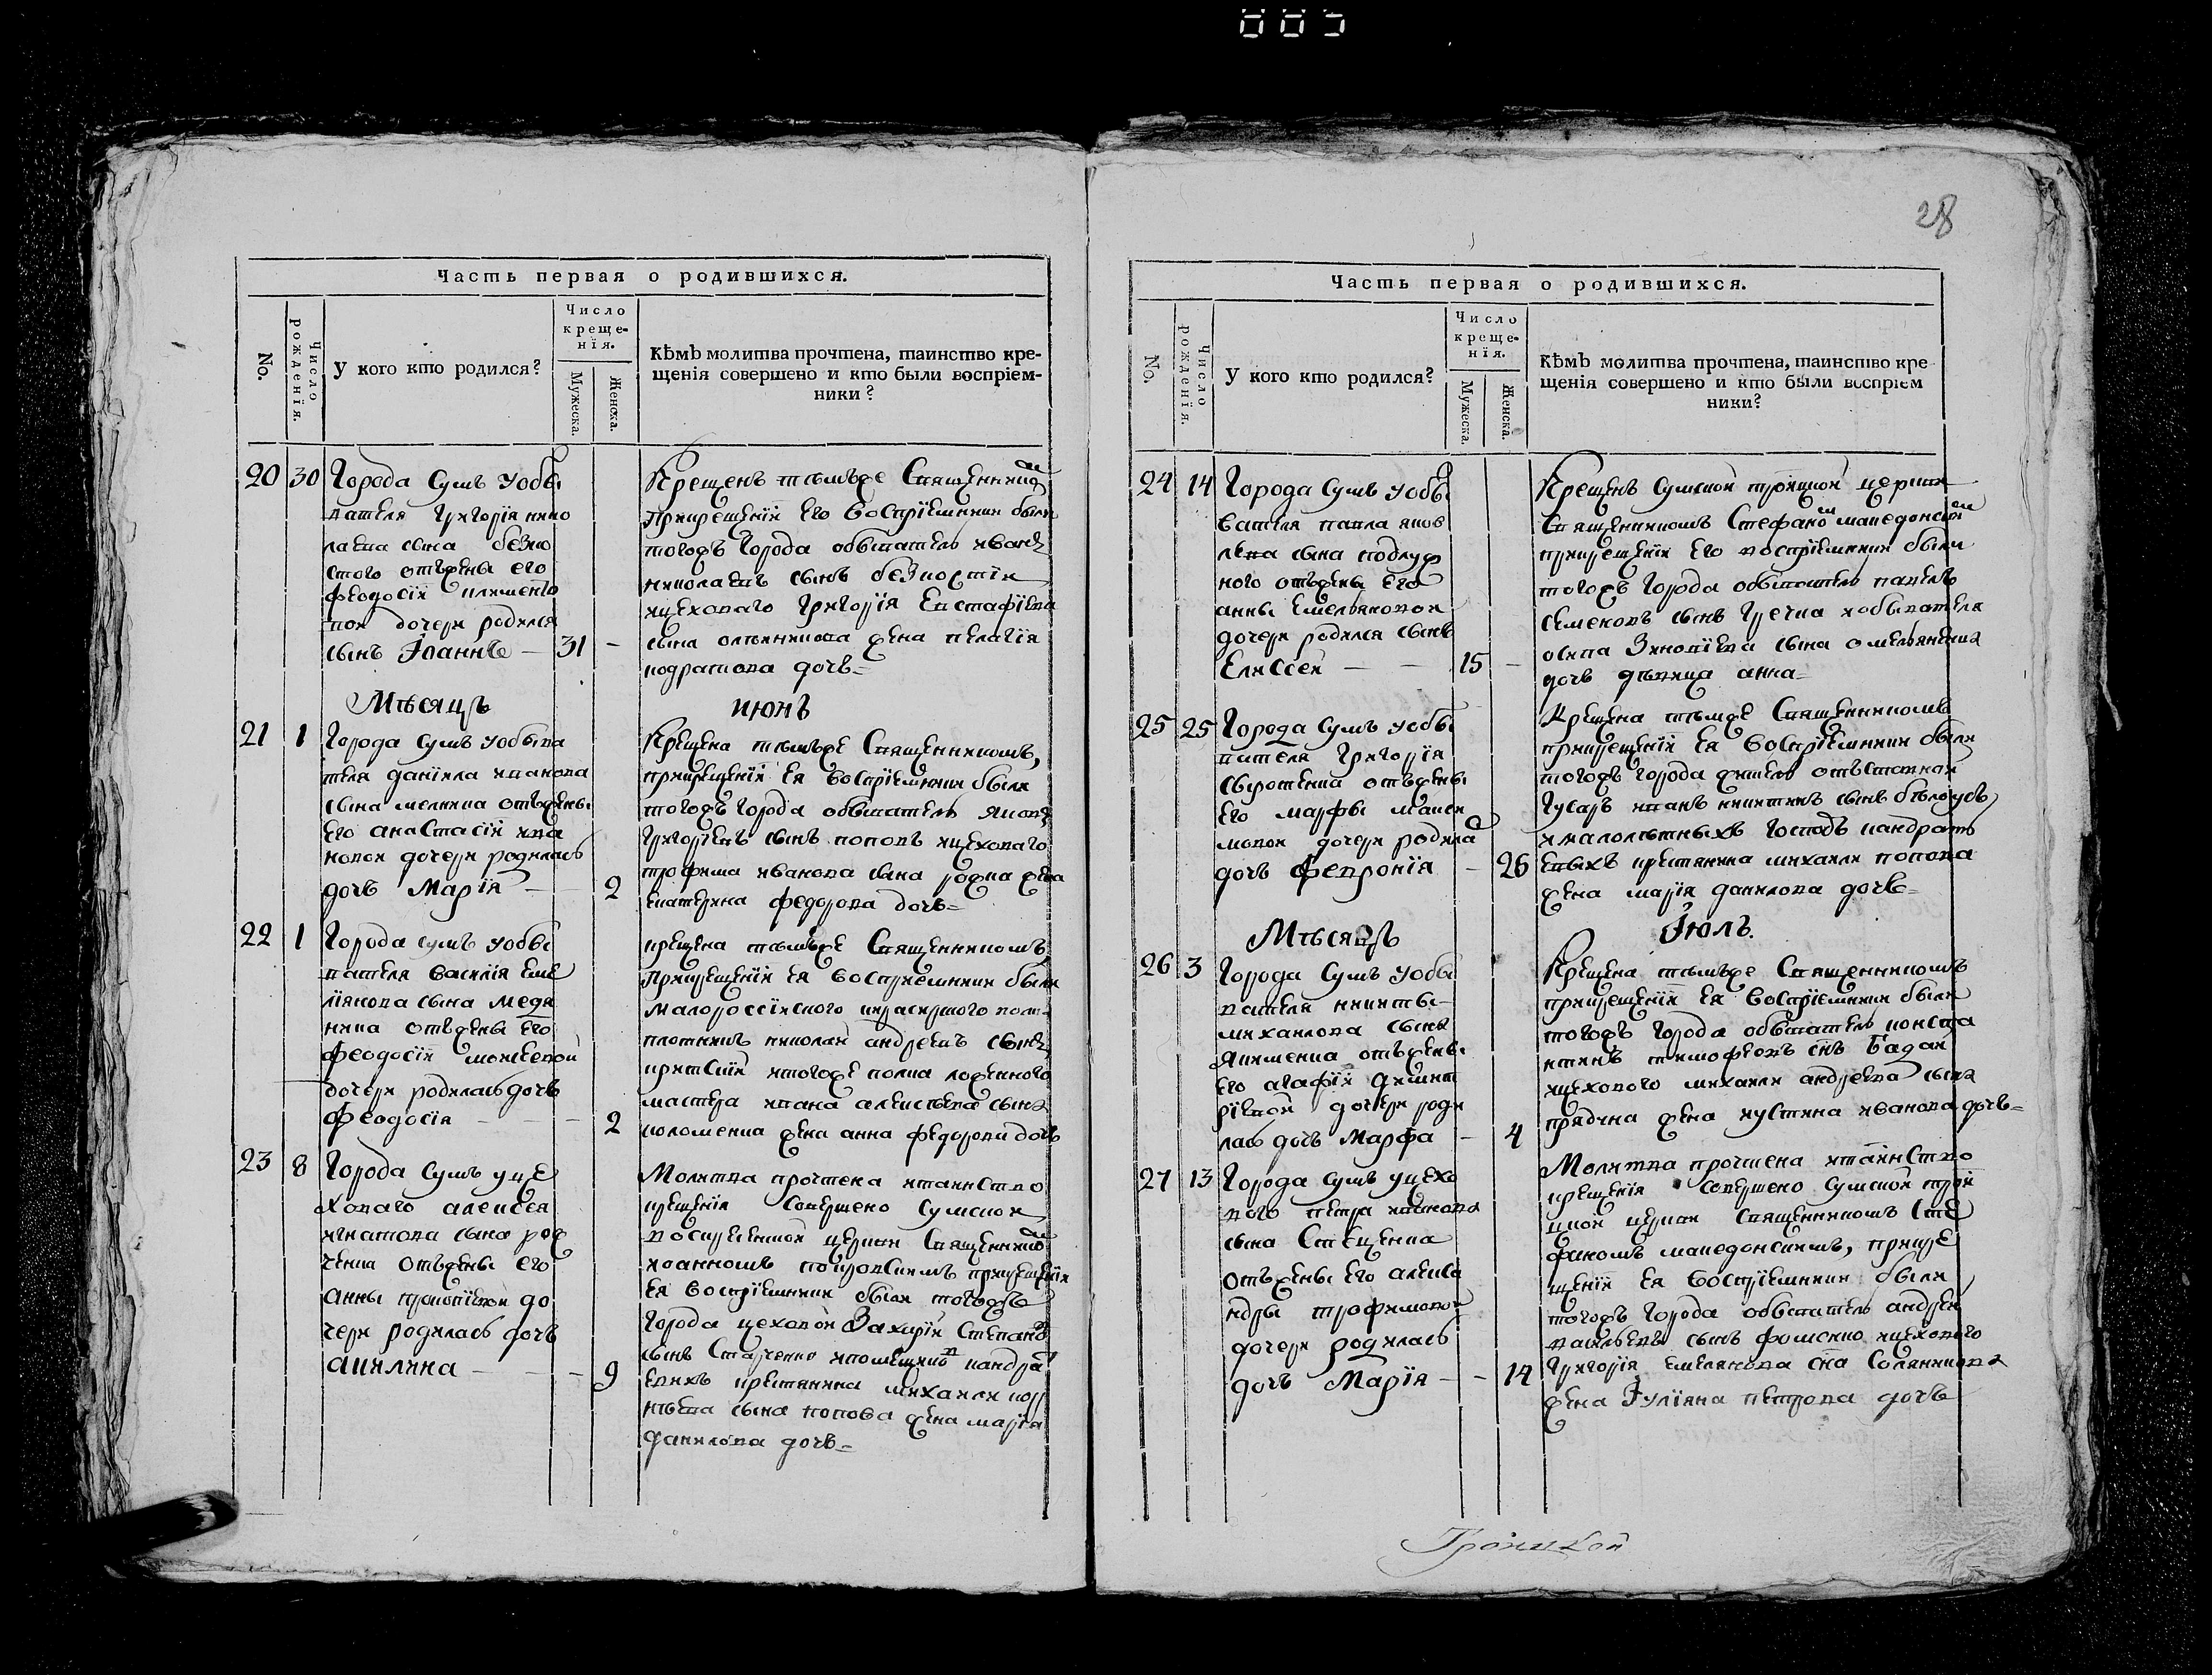 005
28
Часть первая о родившихся.
No.
Число рожденїя.
У кого кто родился?
Число
креще-
нїя.
Мужеска.
Женска.
Кѣмъ молитва прочтена, таинство кре-
щенія совершено и кто были воспріем-
ники?
20 30 Города Сумъ уобы
вателя Григорія нико
лаева сына
стого отъжены его
феодосіи
вой дочери родился
сынъ Іоаннъ — 31 —
Крещенъ тѣмъже Священникомъ
прикрещеніи Его Воспріемники были
тогожъ Города обыватель иванъ
николаевъ сынъ
ицеховаго Григорія Евстафіева
сына олейникова жена пелагія
кодратова дочь=
Мѣсяцъ июнь
21 1 Города Сумъ уобыва
теля даніила иванова
сына мелника отъжены
Его анастасіи ива
новой дочери родилась
дочь Марія — 2
Крещена тѣмъже Священникомъ,
прикрещеніи Ея Воспріемники были
тогожъ Города обыватель яковъ
Григоріевъ сынъ поповъ ицеховаго
трофима иванова сына жена
Екатерина федорова дочь=
22 1 Города сумъ уобы
вателя Василія Еме
ліянова сына медя
ника отъжены Его
феодосіи моисеевой
дочери родилась дочь
феодосія — — — 2
крещена тѣмъже Священникомъ,
Прикрещеніи Ея Воспріемники были
малороссійского кирасирского полка
плотникъ николай андреевъ сынъ
итогоже полка ложенного
мастера ивана алексѣева сына
коломейца жена анна федорова дочь
23 8 Города Сумъ уце
ховаго алексея
игнатова сына
отъжены Его
анны прокопіевой до
чери родилась дочь
акилина — — — 9
Молитва прочтена итаинство
крещенія Совершено Сумской
воскресенской церкви Священникомъ
иоанномъ прикрещеніи
Ея Воспріемники были тогожъ
Города цеховой Захарій Степановъ
сынъ Старченко ипомещиковъ кандра
евыхъ крестянина михаила кор
нѣева сына попова жена марія
данилова дочь=
Часть первая о родившихся.
No.
Число рожденїя.
У кого кто родился?
Число
креще-
нїя.
Мужеска.
Женска.
Кѣмъ молитва прочтена, таинство кре
щенія совершено и кто были воспріем
ники?
24 14 Города Сумъ уобы
вателя павла яков
лева сына подлуж
ного отъжены Его
анны Емельяновой
дочери родился сынъ
Елиссей — — 15 —
Крещенъ Сумской троицкой церкви
Священникомъ Стефаномъ македонскимъ
прикрещеніи Его воспріемники были
тогожъ Города обыватель павелъ
семеновъ сынъ Гречка иобывателя
осипа Зиновіева сына омельяненка
дочь дѣвица анна=
25 25 Города Сумъ уобы
вателя Григорія
сыротенка отъжены
Его марфы макси
мовой дочери родила
дочь Февронія — 26
Крещена тѣмже Священникомъ
прикрещеніи Ея Воспріемники были
тогожъ Города житель отъставной
Гусаръ иванъ никитинъ сынъ бѣлоусъ,
ималолѣтныхъ Господъ кандрать
евыхъ крестянина михаила попова
жена марія данилова дочь=
Мѣсяцъ Іюль.
26 3 Города Сумъ уобы
вателя никиты
михаилова сына
якименка отъжены
Его агафіи димит
ріевой дочери роди
лась дочь Марфа — 4
Крещена тѣмъже Священникомъ
прикрещеніи Ея Воспріемники были
тогожъ Города обыватель конста
нтинъ тимофеевъ снъ Бадай
ицехового михаила андреева сына
прядчна жена иустина иванова дочь=
27 13 Города Сумъ уцехо
вого петра иванова
сына Стеценка
отъжены Его алекса
ндры трофимовой
дочери родилась
дочь Марія — — 14
Молитва прочтена итаинство
крещенія Совершено Сумской трои
цкой церкви Священникомъ Сте
фаномъ македонскимъ, прикре
щеніи Ея Воспріемники были
тогожъ Города обыватель андрей
васильевъ сынъ фоменко ицехового
Григорія Емелянова сна Соляникова
жена Іуліяна петрова дочь
Троицкой